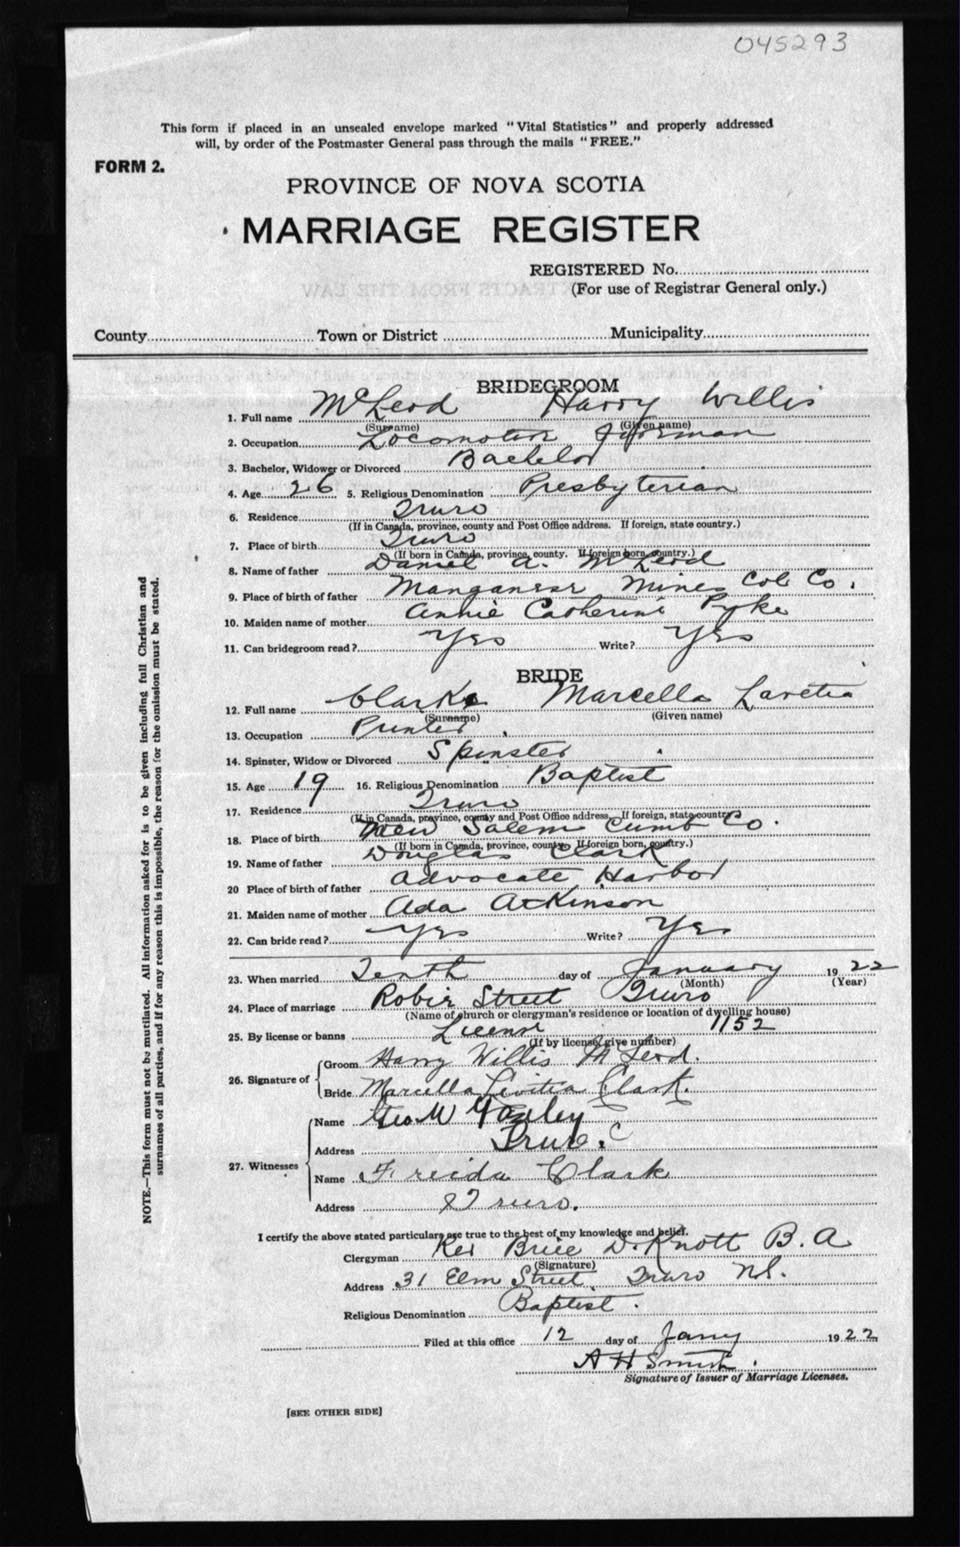 045293
This form if placed in an unsealed envelope marked "Vital Statistics" and properly addressed
will, by order of the Postmaster General pass through the mails "FREE."
FORM 2.
PROVINCE OF NOVA SCOTIA
MARRIAGE REGISTER
REGISTERED No.
(For use of Registrar General only.)
County Town or District Municipality
BRIDEGROOM
1. Full name McLeod Harry Willis
(Surname) (Given name)
2. Occupation Locomotive
3. Bachelor, Widower or Divorced Bachelor
4. Age 26 5. Religious Denomination Presbyterian
6. Residence Truro
(If in Canada, province, county and Post Office address. If foreign, state country.)
7. Place of birth Truro
(If born in Canada, province, county. If foreign born, country.)
8. Name of father Daniel A. McLeod
9. Place of birth of father Manganese Mines Col Co.
10. Maiden name of mother Annie Catherine Pyke
11. Can bridegroom read? Yes Write? Yes
BRIDE
12. Full name Clark Marcella Laretia
(Surname) (Given name)
13. Occupation Printer
14. Spinster, Widow or Divorced Spinster
15. Age 19 16. Religious Denomination Baptist
17. Residence Truro
(If in Canada, province, county and Post Office address. If foreign, state country.)
18. Place of birth New Salem Cumb Co.
(If born in Canada, province, county. If foreign born, country.)
19. Name of father Douglas Clark
20 Place of birth of father Advocate Harbor
21. Maiden name of mother Ada Atkinson
22. Can bride read? Yes Write? Yes
23. When married Tenth day of January 1922
(Month) (Year)
24. Place of marriage Robie Street Truro
(Name of church or clergyman's residence or location of dwelling house)
25. By license or banns License 1152
(If by license, give number)
26. Signature of Groom Harry Willis McLeod.
Bride Marcella Levitia Clark.
27. Witnesses Name Geo M
Address Truro.
Name Freida Clark
Address Truro.
I certify the above stated particulars are true to the best of my knowledge and belief.
Clergyman Rev Brice D. Knott B.A
(Signature)
Address 31 Elm Street Truro N.S.
Religious Denomination Baptist.
Filed at this office 12 day of Jany 1922
A H Smith.
Signature of Issuer of Marriage Licenses.
[SEE OTHER SIDE]
NOTE.—This form must not be mutilated. All information asked for is to be given including full Christian and
surnames of all parties, and if for any reason this is impossible, the reason for the omission must be stated.